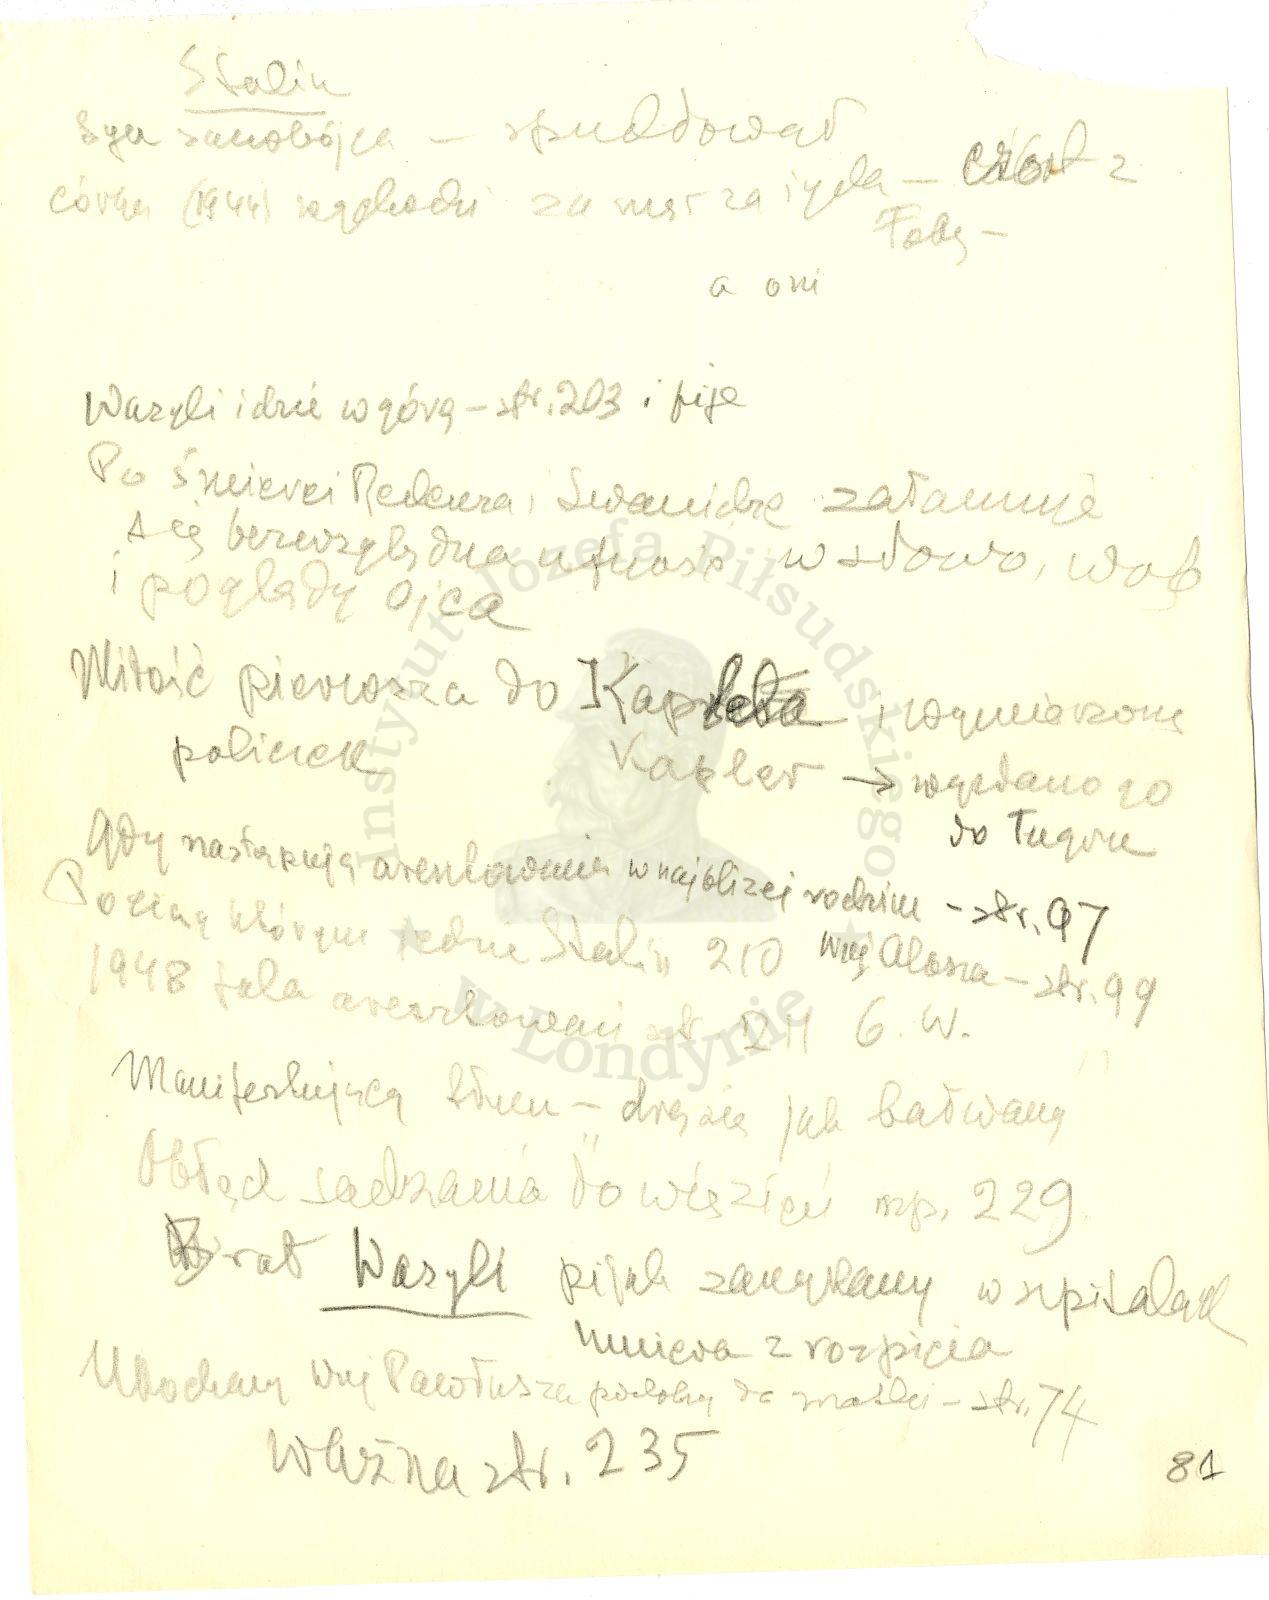 Stalin
Syn samobójca – spudłował
córka (1944) wychodzi za mąż za żyda – czort z
Tobą –
a oni
Wasyli idzie w górę – str. 203 i pije
Po śmierci Redensa i Swanidze załamuje
się bezwzględna ufność w słowo, wolę
i poglądy ojca
Miłość pierwsza do Kaplera i wymierzony
policzek Kapler → wysłano go
do łagru
Gdy następują aresztowania w najbliższej rodzinie – str. 97
Pociąg którym jedzie Stalin 210 wuj Alosza – str. 99
1948 fala aresztowań str 211 6. W.
Manifestujący tłum – drą się jak bałwany
Obłęd sadzania do więzień np. 229
Brat Wasyli pijak zamykany w szpitalach
umiera z rozpicia
Ukochany wuj Pawłusza podobny do matki – str. 74
Ważna str. 235
81
Instytut Józefa Piłsudskiego
w Londynie